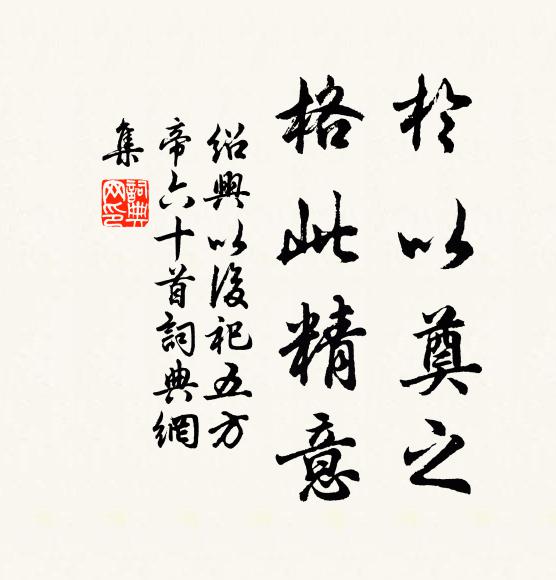 於以奠之
格此精意
紹興以後祀五方
帝六十首詞典網
集
詞典
网印